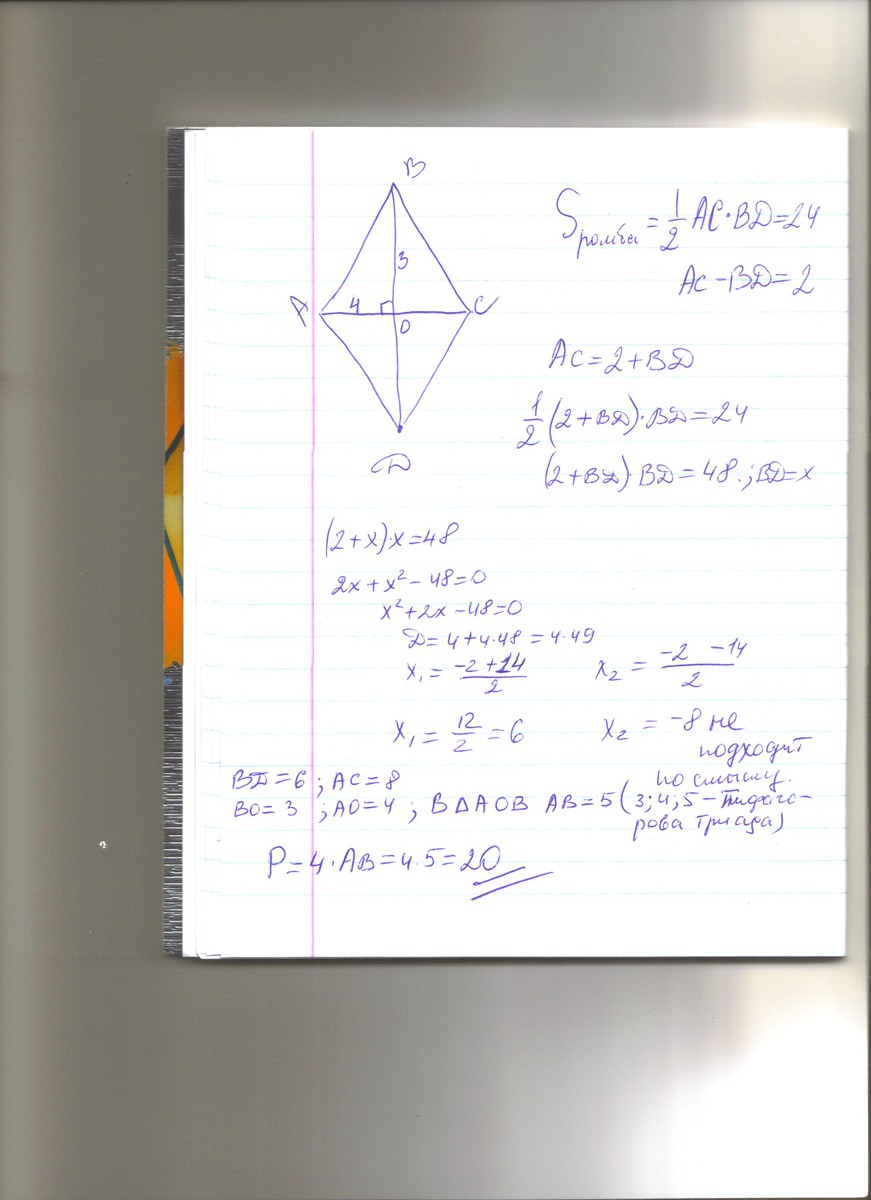 B
3
A 4 O C
D
S ромба = 1/2 AC·BD=24
AC-BD=2
AC=2+BD
1/2(2+BD)·BD=24
(2+BD)·BD=48.;BD=x
(2+x)·x=48
2x+x²-48=0
x²+2x-48=0
D=4+4·48=4·49
x₁=(-2+14)/2 x₂=(-2-14)/2
x₁=12/2=6 x₂=-8 не
подходит
по смыслу.
BD=6; AC=8
BO=3 ;AO=4 ; В ΔAOB AB=5(3;4;5-Пифаго-
рова триада)
P=4·AB=4·5=20